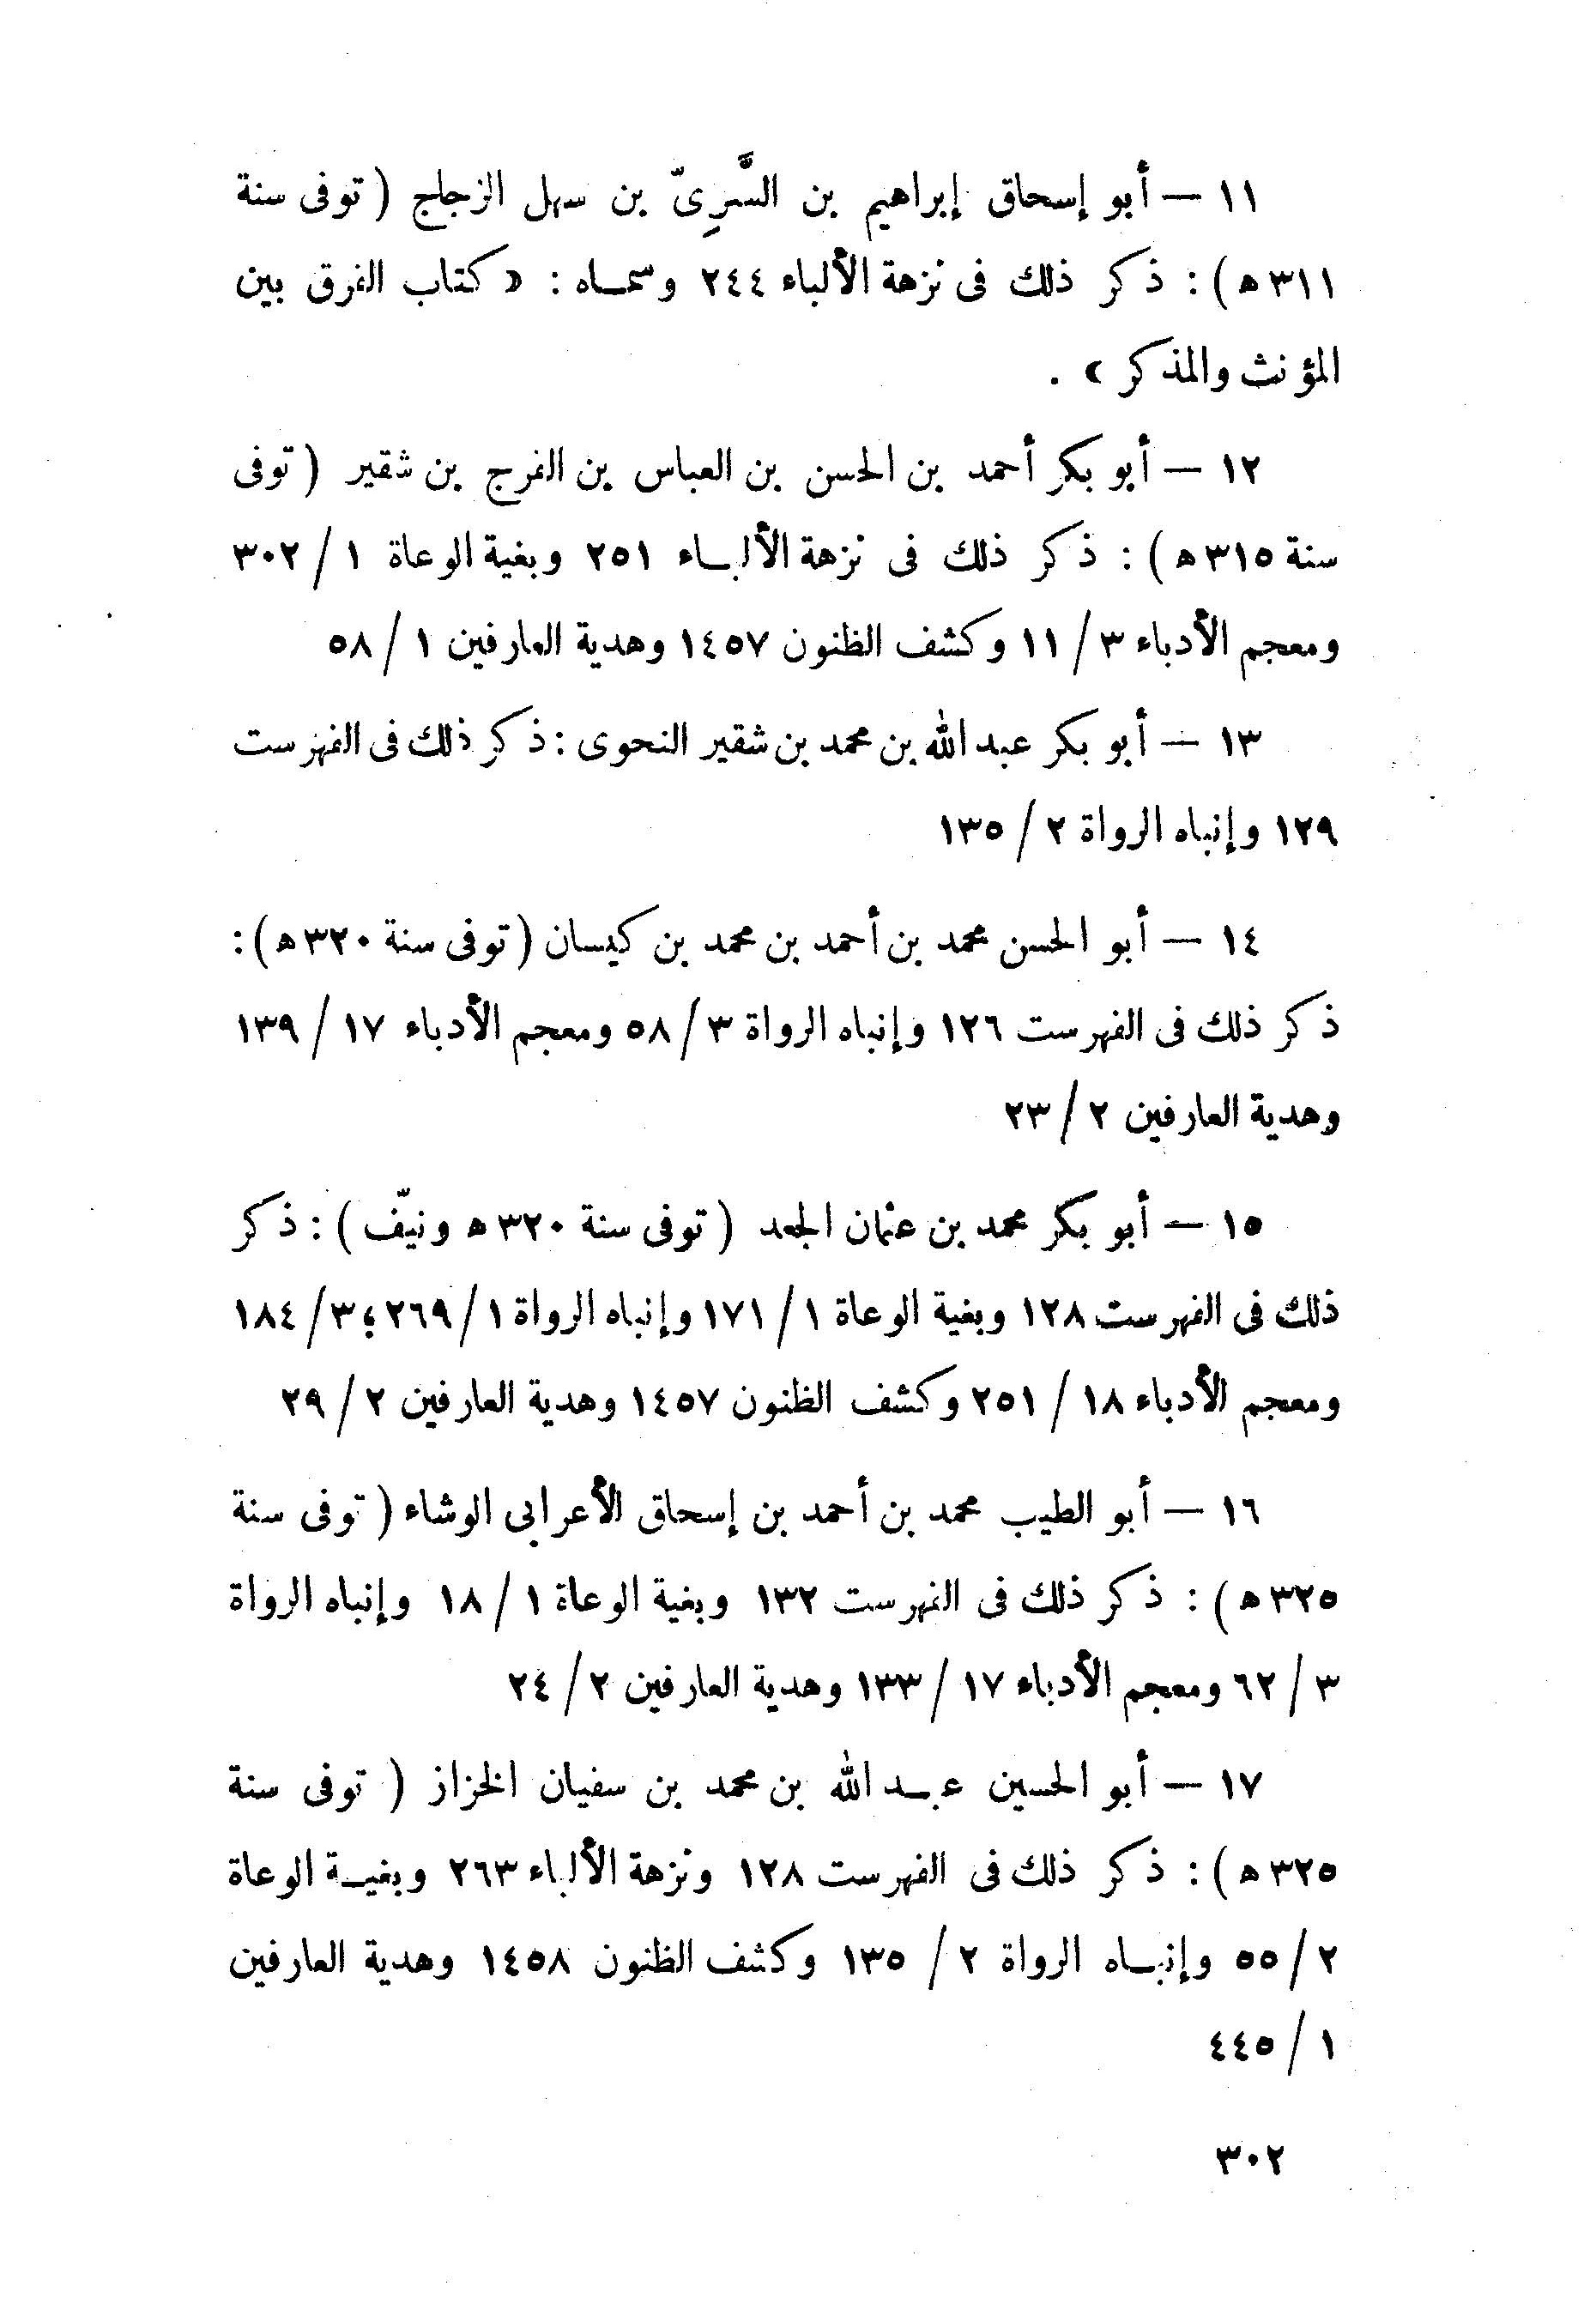 ١١ — أبو إسحاق إبراهيم بن السَّرِىّ بن سهل الزجاج ( توفى سنة
٣١١ه ) : ذكر ذلك فى نزهة الألباء ٢٤٤ وسماه : « كتاب الفرق بين
المؤنث والمذكر » .
١٢ — أبو بكر أحمد بن الحسن بن العباس بن الفرج بن شقير ( توفى
سنة ٣١٥ه ) : ذكر ذلك فى نزهة الألباء ٢٥١ وبغية الوعاة ١ / ٣٠٢
ومعجم الأدباء ٣ / ١١ وكشف الظنون ١٤٥٧ وهدية العارفين ١ / ٥٨
١٣ — أبو بكر عبد الله بن محمد بن شقير النحوى : ذكر ذلك فى الفهرست
١٢٩ وإنباه الرواة ٢ / ١٣٥
١٤ — أبو الحسن محمد بن أحمد بن محمد بن كيسان ( توفى سنة ٣٢٠ه ) :
ذكر ذلك فى الفهرست ١٢٦ وإنباه الرواة ٣ / ٥٨ ومعجم الأدباء ١٧ / ١٣٩
وهدية العارفين ٢ / ٢٣
١٥ — أبو بكر محمد بن عثمان الجعد ( توفى سنة ٣٢٠ه ونيّف ) : ذكر
ذلك فى الفهرست ١٢٨ وبغية الوعاة ١ / ١٧١ وإنباه الرواة ١ / ٢٦٩ ؛ ٣ / ١٨٤
ومعجم الأدباء ١٨ / ٢٥١ وكشف الظنون ١٤٥٧ وهدية العارفين ٢ / ٢٩
١٦ — أبو الطيب محمد بن أحمد بن إسحاق الأعرابى الوشاء ( توفى سنة
٣٢٥ه ) : ذكر ذلك فى الفهرست ١٣٢ وبغية الوعاة ١ / ١٨ وإنباه الرواة
٣ / ٦٢ ومعجم الأدباء ١٧ / ١٣٣ وهدية العارفين ٢ / ٢٤
١٧ — أبو الحسين عبد الله بن محمد بن سفيان الخزاز ( توفى سنة
٣٢٥ه ) : ذكر ذلك فى الفهرست ١٢٨ ونزهة الألباء ٢٦٣ وبغية الوعاة
٢ / ٥٥ وإنباه الرواة ٢ / ١٣٥ وكشف الظنون ١٤٥٨ وهدية العارفين
١ / ٤٤٥
٣٠٢